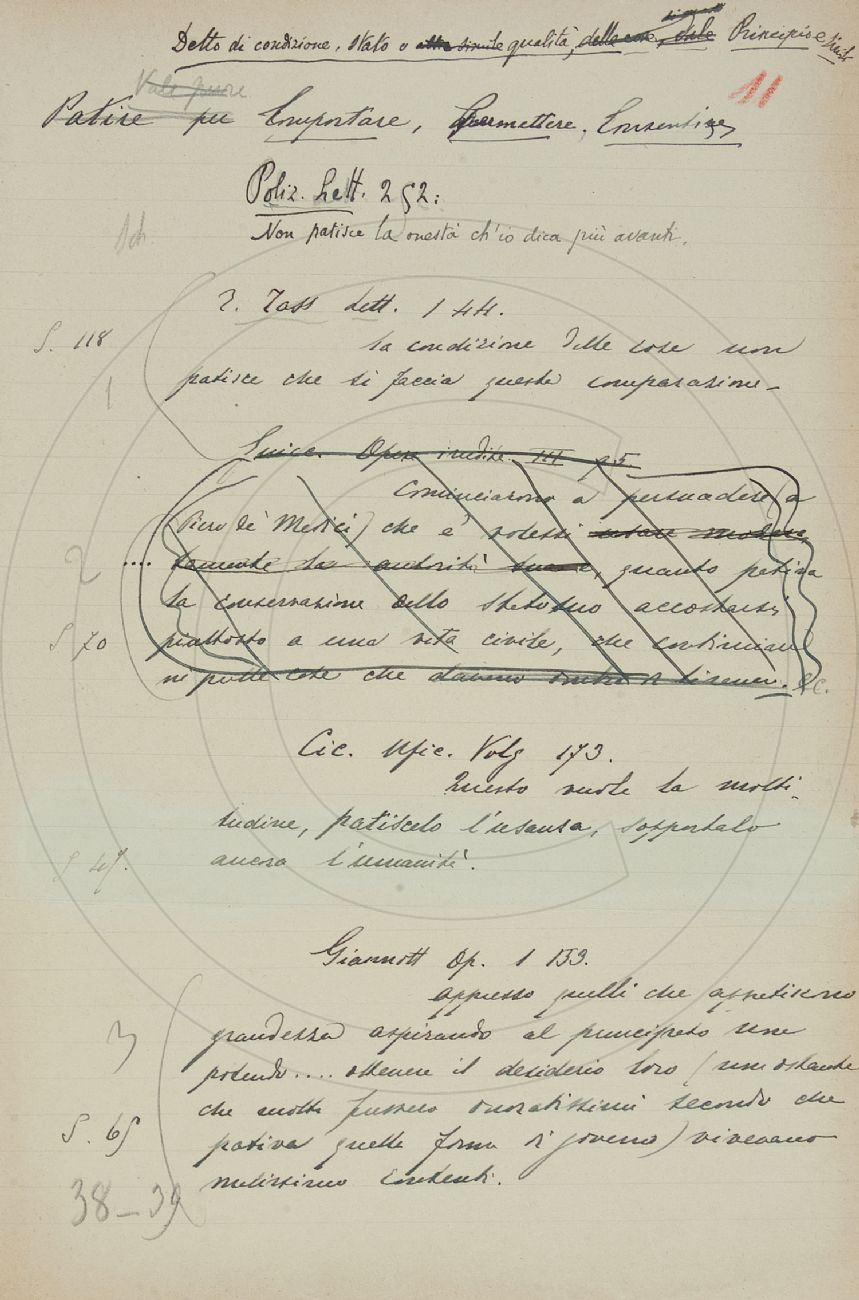 Detto di condizione, stato o altra simile qualità, delle cose, Principio e simili
Vale pure
11
Patire per Comportare, Permettere, Consentire,
Poliz. Lett. 252:
Non patisce la onestà ch'io dica più avanti.
T. Tass Lett. 1 44.
S. 118
La condizione delle cose non
patisce che si faccia questa comparazione -
1
Guicc. Opere inedite. III p. 5.
Cominciarono a persuadere (a
Piero de' Medici) che e' volessi usare modera
2
.... tamente la autorità suae, quanto pativa
la conservazione dello Stato suo accostarsi
S 70
piuttosto a una vita civile, che continuare
in quelle cose che davano ombra di tirannia. &c.
Cic. Ufic. Volg 173.
Questo vuole la molti-
tudine, patiscelo l'usanza, sopportalo
S 47.
ancora l'umanità.
Giannott Op. 1 153.
Appresso quelli che appetiscono
3
grandezza aspirando al principato non
potendo.... ottenere il desiderio loro (nonostante
che molti fussero onoratissimi secondo che
S. 65
pativa quella forma di governo) vivevano
malissimo contenti.
38-39